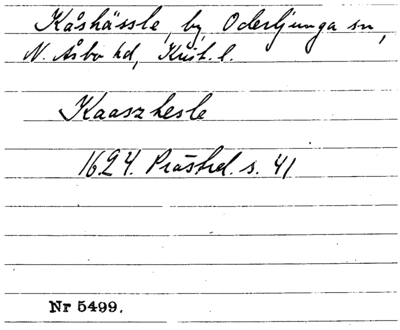 Kåshässle, by, Oderljunga sn,
N. Åsbo hd, Krist. l.
Kaaszhesle
1624. Prästrel. s. 41
Nr 5499.